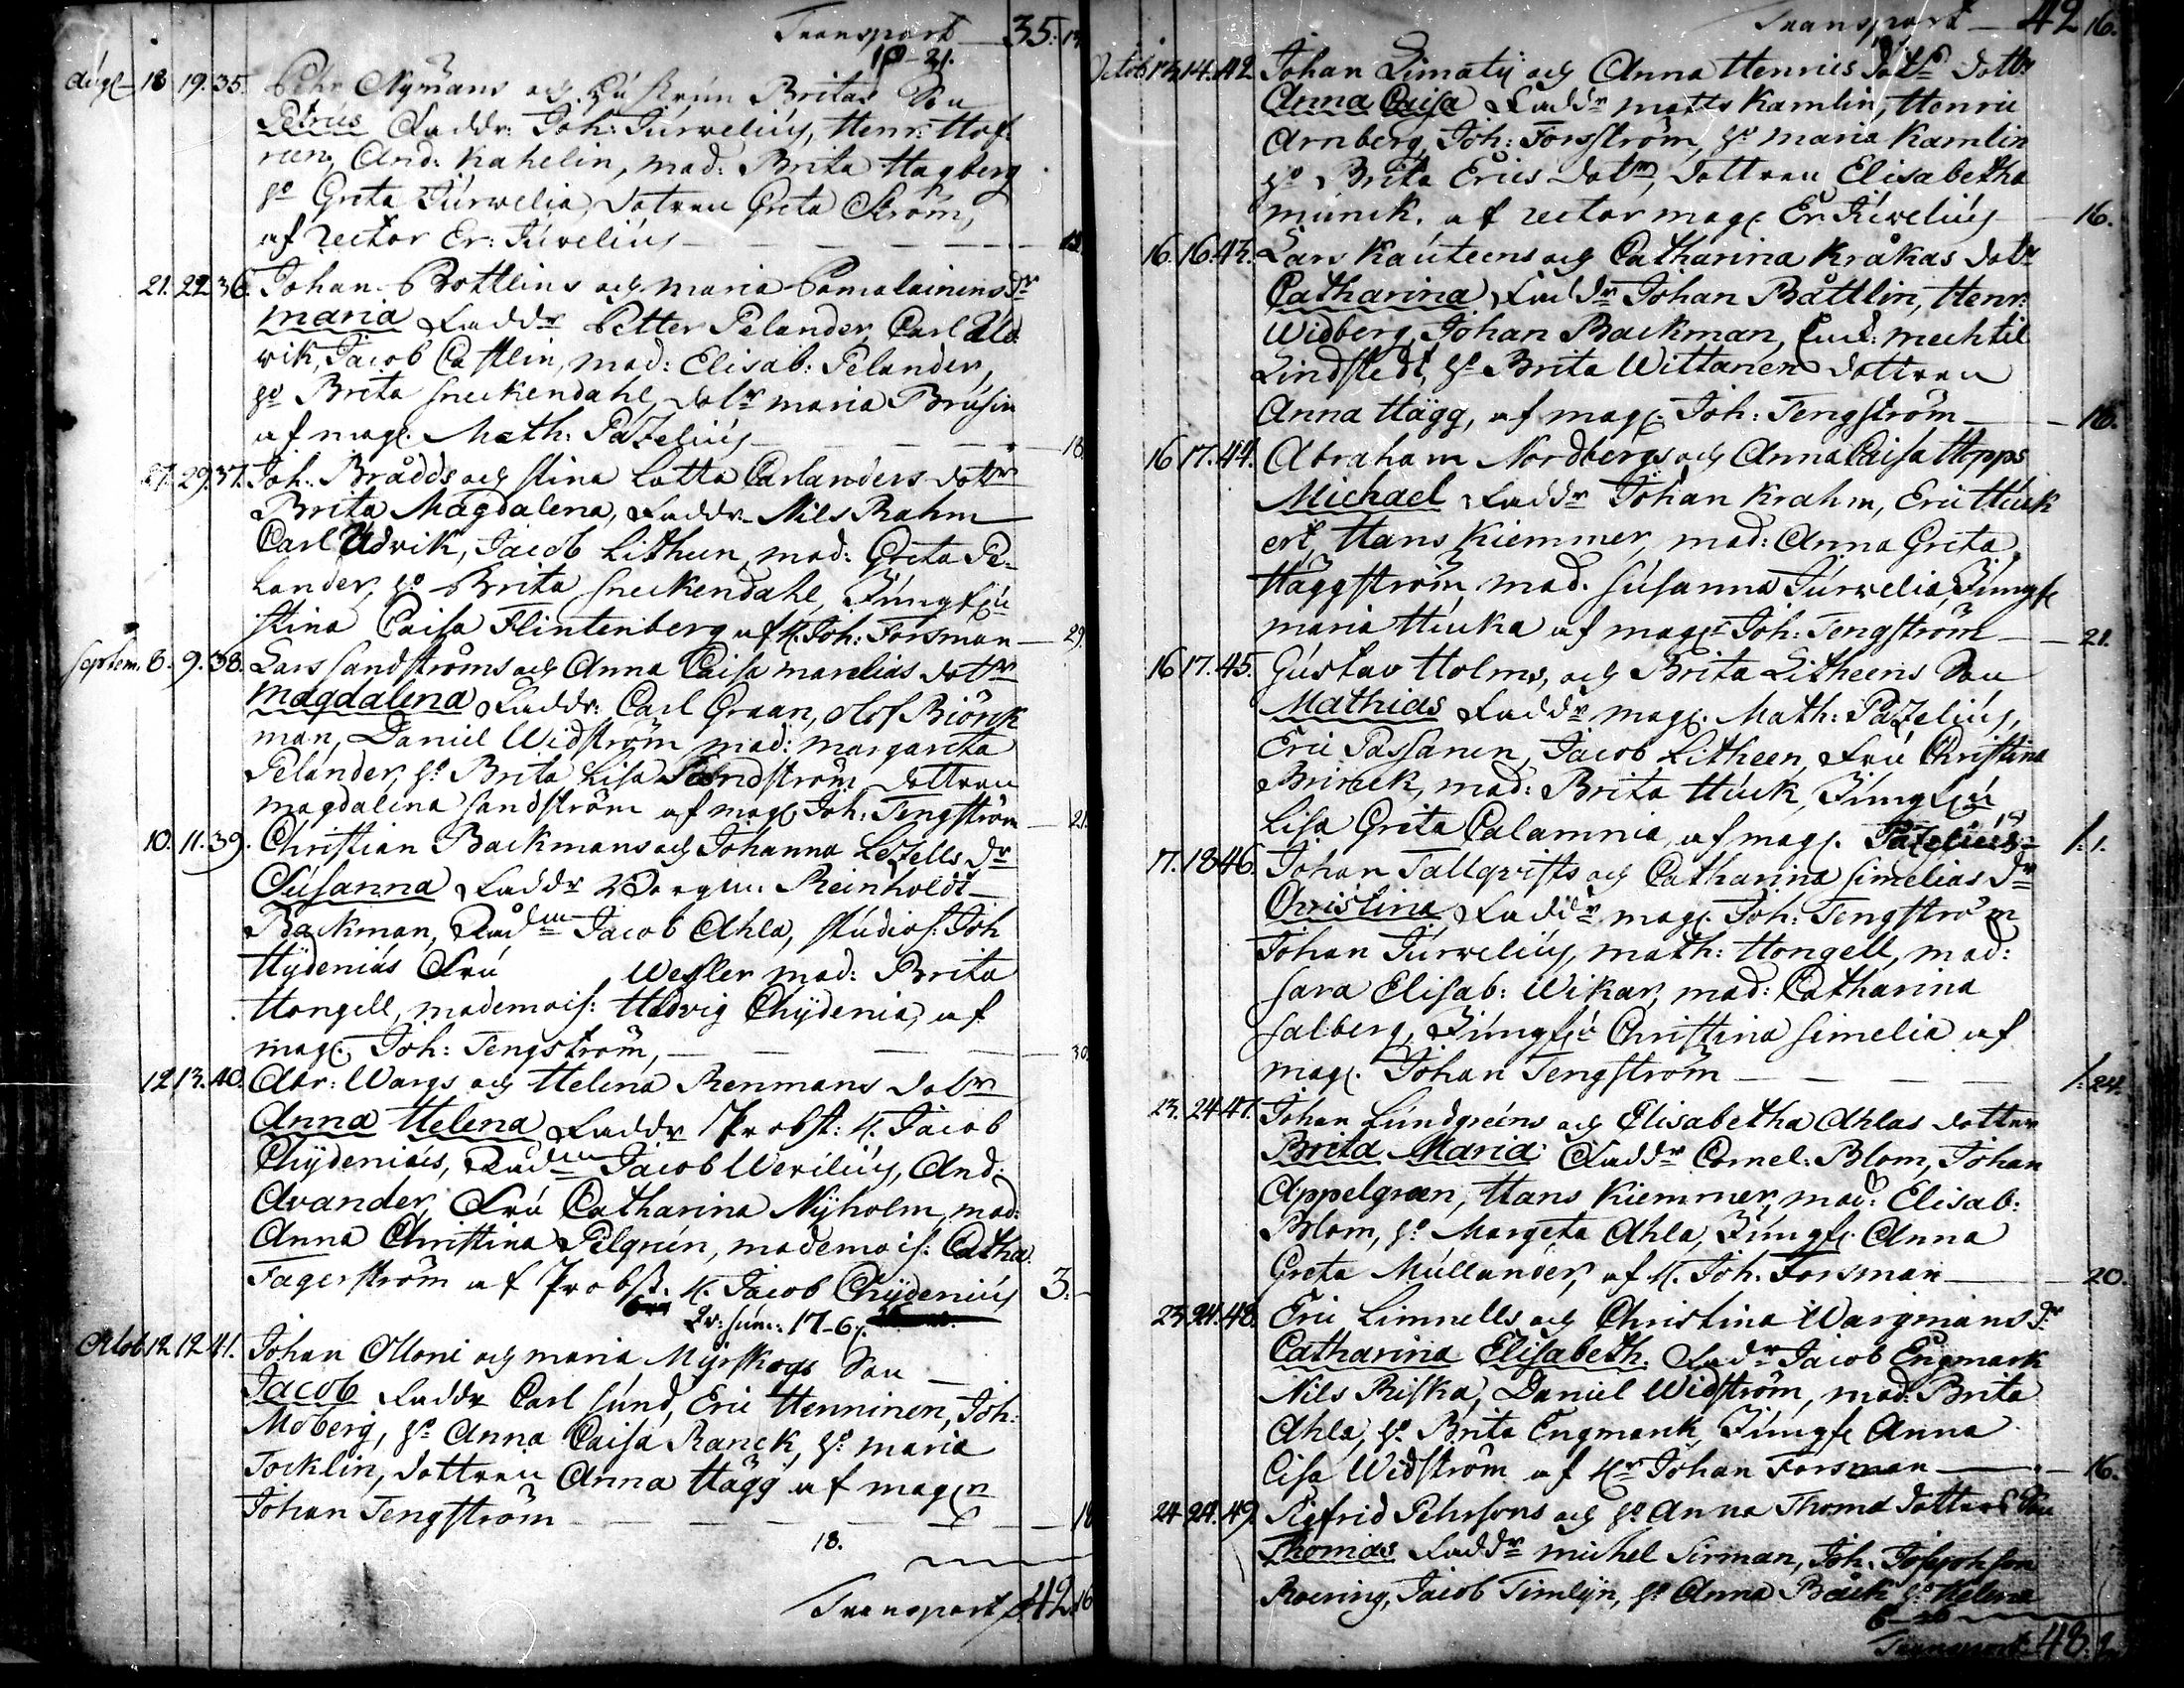 Transport — 35:
10-21.
Aug. 18 19. 35. Pehr Nymans och Britas Son
Petrus Faddr: Joh: Jurvelius, Henr: Hof-
reen, And: Kahelin, mad: Brita Hagberg
Ho Greta Jurvelia, dotren Greta Ström,
af rector Er: Juvelius — — — 
21. 22 36. Johan Bottlins och Maria Pamalainens dr
Maria Faddr Petter Pelander, Carl Ud
vik, Jacob Castlin, mad: Elisab: Pelander,
ho Brita Sneckendahl, dotr Maria Brusin
af mag. Math: Pazelius — — — 18.
27. 29. 37. Joh. Brådds och Stina Lotta Carlanders dottr
Brita Magdalena, Faddr Nils Rahm
Carl Udvik, Jacob Litheen, mad: Greta Pe-
lander, ho Brita Sneckendahl, Jungfru
Stina Caisa Flintenberg af H. Joh: Forsman — 29.
Septem. 8. 9. 38. Lars Sandströms och Anna Caisa Marelias dotr
Magdalena Faddr: Carl Graan, Olof Biörk
man, Daniel Widström mad: Margareta
Pelander, ho Brita Lisa Sandström dottren
Magdalena Sandström af mag. Joh: Tengström — 21.
10. 11. 39. Christian Backmans och Johanna Lezells Dr
Susanna Faddr Borgm: Reinholdt
Backman, Rådm Jacob Ahla, Studios: Joh
Hydenius Fru Wefler mad: Brita
Hongell, mademois: Hedvig Chydenia, af
mag. Joh: Tengström, — — — 30.
12 13. 40. Abr: Wargs och Helena Renmans dotr
Anna Helena Faddr Probst: H. Jacob
Chydenius, Rådm Jacob Werilius, And:
Avander, Fru Catharina Nyholm, mad:
Anna Christina Pelgrén, mademois: Catha
Fagerström af Probst. H. Jacob Chydenius 3. —
17-6.
Octob 12. 12 41. Johan Olloni och Maria Myrskogs Son —
Jacob Faddr Carl Sund, Eric Henninen, Joh:
Moberg, ho Anna Caisa Ranck, ho Maria
Tocklin, dottren Anna Hägg af magn
Johan Tengström — — — 18
18.
Transport 42. 16
Transport — 42 16.
Octob 13. 14. 42. Johan Limatij och Anna Henrics dotrs dottr
Anna Caisa Faddr Matts Kamlin, Henric
Arnberg, Joh: Forsström, ho Maria Kamlin
ho Brita Erics dotr, dottren Elisabetha
Munck, af rector mag. Er. Juvelius — 16.
16. 16. 43. Lars Kauteens och Catharina Kråkas dotr
Catharina Faddr Johan Båttlin, Henr:
Widberg, Johan Backman, mechtil
Lindstedt, ho Brita Wittanen dottren
Anna Hägg, af mag. Joh: Tengström — 16.
16 17. 44. Abraham Nordbergs och Anna Caisa Hopps
Michael Faddr Johan Krahm, Eric Huck
ert, Hans Kiemmer, mad: Anna Greta
Häggström, mad. Susanna Jurvelia, Jungf
Maria Hiuka af magr Joh: Tengström — 21.
16 17. 45. Gustav Holms, och Brita Litheens Son
Mathias Faddr mag. Math: Pazelius,
Eric Passanen, Jacob Litheen, Fru Christina
Brinck, mad: Brita Huck, Jungfru
Lisa Greta Calamnia, af mag. Pazelius — 1: 1.
17. 18 46. Johan Tallqvists och Catharina Simelias Dr
Christina Faddr mag. Joh: Tengström
Johan Jurvelius, Math: Hongell, mad:
Sara Elisab: Wikar, mad: Catharina
Salberg, Jungfru Christina Simelia af
mag. Johan Tengström — — — 1: 24.
23. 24 47. Johan Lundgreens och Elisabetha Ahlas dotter
Brita Maria Faddr Cornel: Blom, Johan
Appelgren, Hans Kiemmer, mad: Elisab:
Blom, ho Margeta Ahla, Jungf. Anna
Greta Mullander, af H. Joh. Forsman — 20.
23 24. 48. Eric Limnells och Christina Wargmans dr
Catharina Elisabeth. Fadr Jacob Engmark
Nils Riska, Daniel Widström, mad: Brita
Ahla, ho Brita Engmark, Jungf Anna
Cisa Widström af Hr Johan Forsman — 16.
24 24. 49. Sigfrid Pehrsons och ho Anna Thoma dotters Son
Thomas Faddr Michel Sirman, Joh. Josephson
Roering, Jacob Timlin, ho Anna Back, ho Helena
Transport 48.